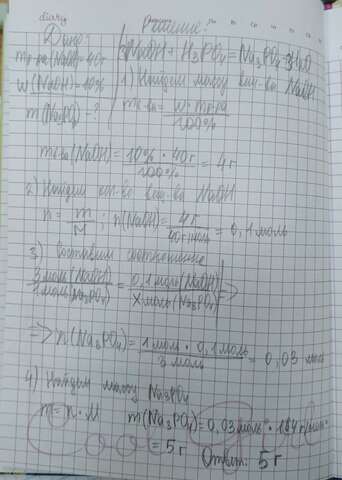 diary
Решение:
Дано:
mр-ра(NaOH)=40г
3NaOH + H3PO4 = Na3PO4 + 3H2O
w(NaOH)=10%
1) Найдем массу вещ-ва NaOH
m(Na3PO4)=?
mв-ва = w · mр-ра / 100%
mв-ва(NaOH) = 10% · 40г / 100% = 4г
2) Найдем кол-во вещ-ва NaOH
n = m / M ; n(NaOH) = 4г / 40г/моль = 0,1моль
3) Составим соотношение
3моль(NaOH) / 1моль(Na3PO4) = 0,1моль(NaOH) / X моль(Na3PO4) =>
=> n(Na3PO4) = 1моль · 0,1моль / 3моль = 0,03 моль
4) Найдем массу Na3PO4
m = n · M m(Na3PO4) = 0,03моль · 164г/моль =
= 5г Ответ: 5г